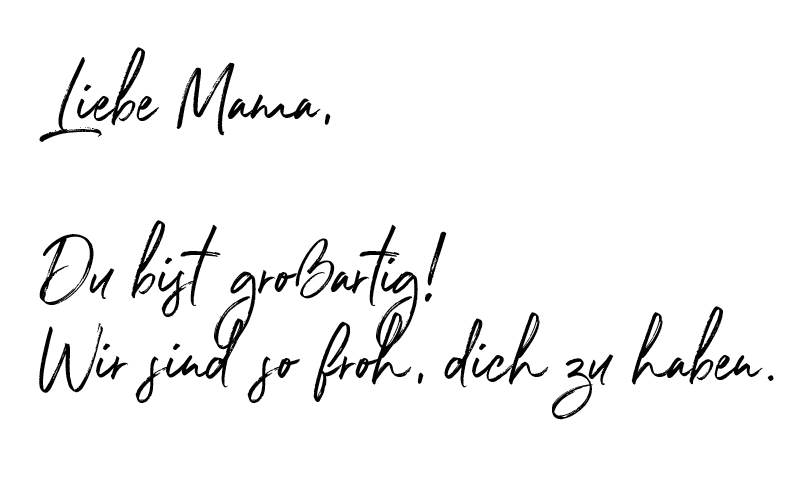 Liebe Mama,
Du bist großartig!
Wir sind so froh, dich zu haben.